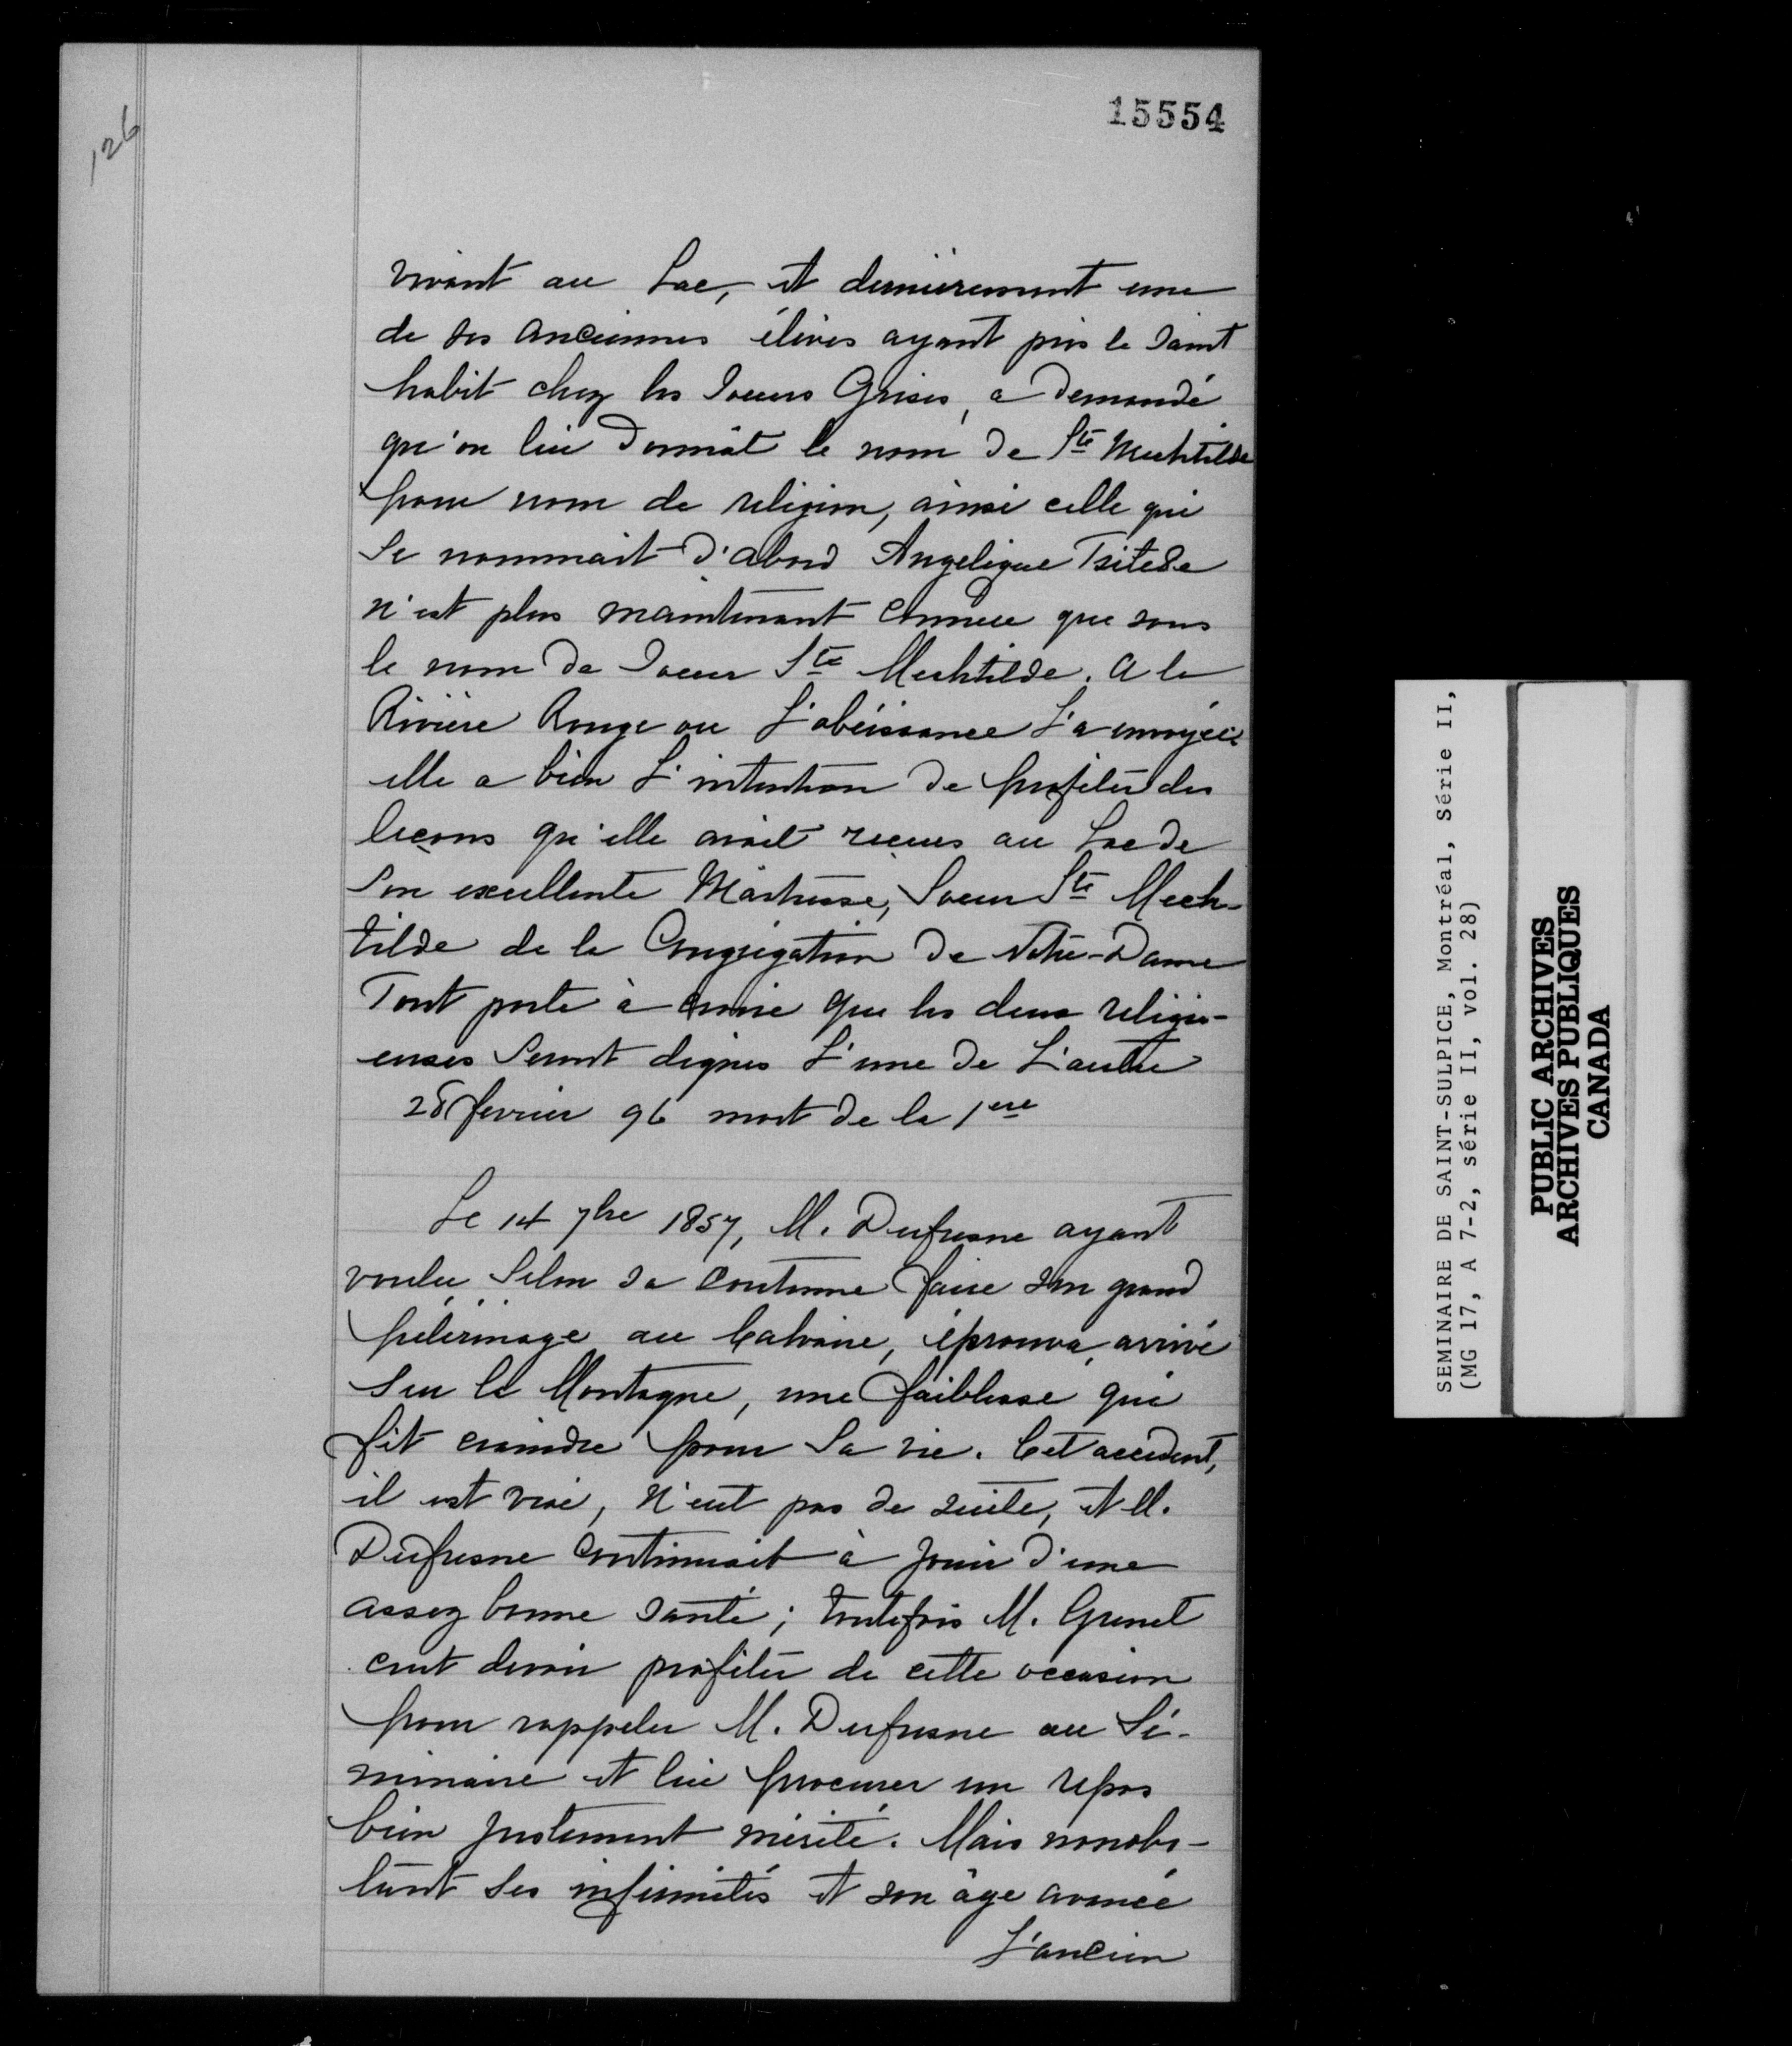 15554
126
vivant au Lac, et dernièrement une
de ses anciennes élèves ayant pris le saint
habit chez les Soeurs Grises, a demandé
qu'on lui donnât le nom de Ste Mechtilde
pour nom de religion, ainsi celle qui
se nommait d'abord Angelique
n'est plus maintenant connue que sous
le nom de Soeur Ste Mechtilde. A la
Rivière Rouge ou l'obéissance l'a envoyée
elle a bien l'intention de profiter des
leçons qu'elle avait reçues au Lac de
son excellente Maîtresse, Soeur Ste Mech-
tilde de la Congrégation de Notre-Dame
Tout porte à croire que les deux religi-
euses seront dignes l'une de l'autre
28 fevrier 96 mort de la 1ere
Le 14 7bre 1857, M. Dufresne ayant
voulu, selon sa coutume faire son grand
pélérinage au Calvaire, éprouva, arrivé
sur la Montagne, une faiblesse qui
fit craindre pour sa vie. Cet accident,
il est vrai, n'eut pas de suite, et M.
Dufresne continuait à jouir d'une
assez bonne santé; toutefois M. Grenet
crut devoir profiter de cette occasion
pour rappeler M. Dufresne au Sé-
minaire et lui procurer un repos
bien justement mérité. Mais nonobs-
tant ses infirmités et son âge avancé
l'ancien
SEMINAIRE DE SAINT-SULPICE, Montréal, Série II,
(MG 17, A 7-2, série II, vol. 28)
PUBLIC ARCHIVES
ARCHIVES PUBLIQUES
CANADA